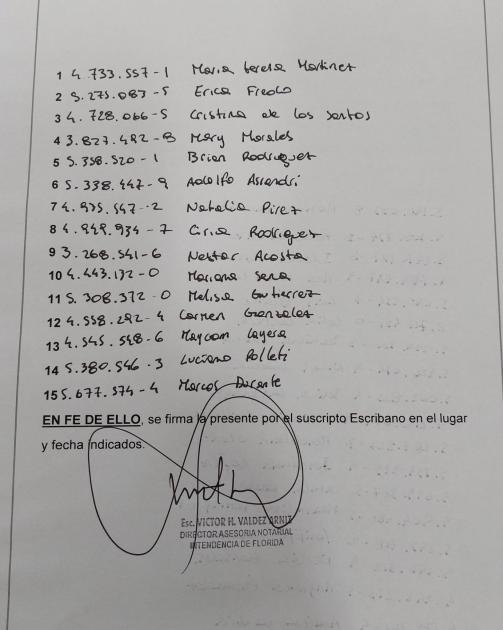 1 4.733.557-1 Maria teresa Martinez
2 5.275.083-5 Erica Fredo
3 4.728.066-5 Cristina de los santos
4 3.827.492-8 Mery Morales
5 5.358.520-1 Brian Rodriguez
6 5.338.447-9 Adolfo Ascandri
7 4.975.547-2 Natalia Pirez
8 4.949.934-7 Rodriguez
9 3.268.541-6 Nestor Acosta
10 4.443.132-0 Mariana Sena
11 5.308.372-0 Melisa Gutierrez
12 4.558.292-4 Carmen Gonzalez
13 4.545.548-6 Maycom Layera
14 5.380.546-3 Luciano Polleti
15 5.677.574-4 Marcos Durante
EN FE DE ELLO, se firma la presente por el suscripto Escribano en el lugar
y fecha indicados.
Esc. VICTOR H. VALDEZ ARNIZ
DIRECTOR ASESORIA NOTARIAL
INTENDENCIA DE FLORIDA